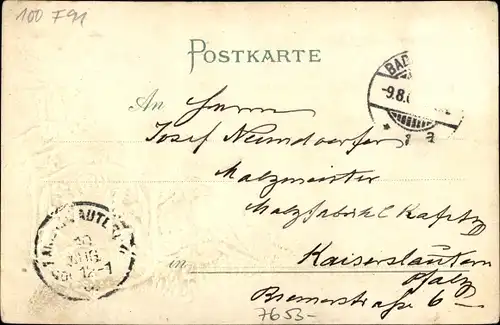 100 F91
POSTKARTE
BAD
-9.8.
An Herrn
Josef Neundorfer
Malzmeister
Malzfabrik
KAISERSLAUTERN
10
AUG
12-1
in Kaiserslautern
Pfalz
Bremerstraße 6
7653-